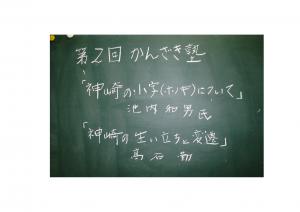 第2回かんざき塾
「神崎の小字(ホノギ)について」
池内和男氏
「神崎の生い立ちと変遷」
高石勲